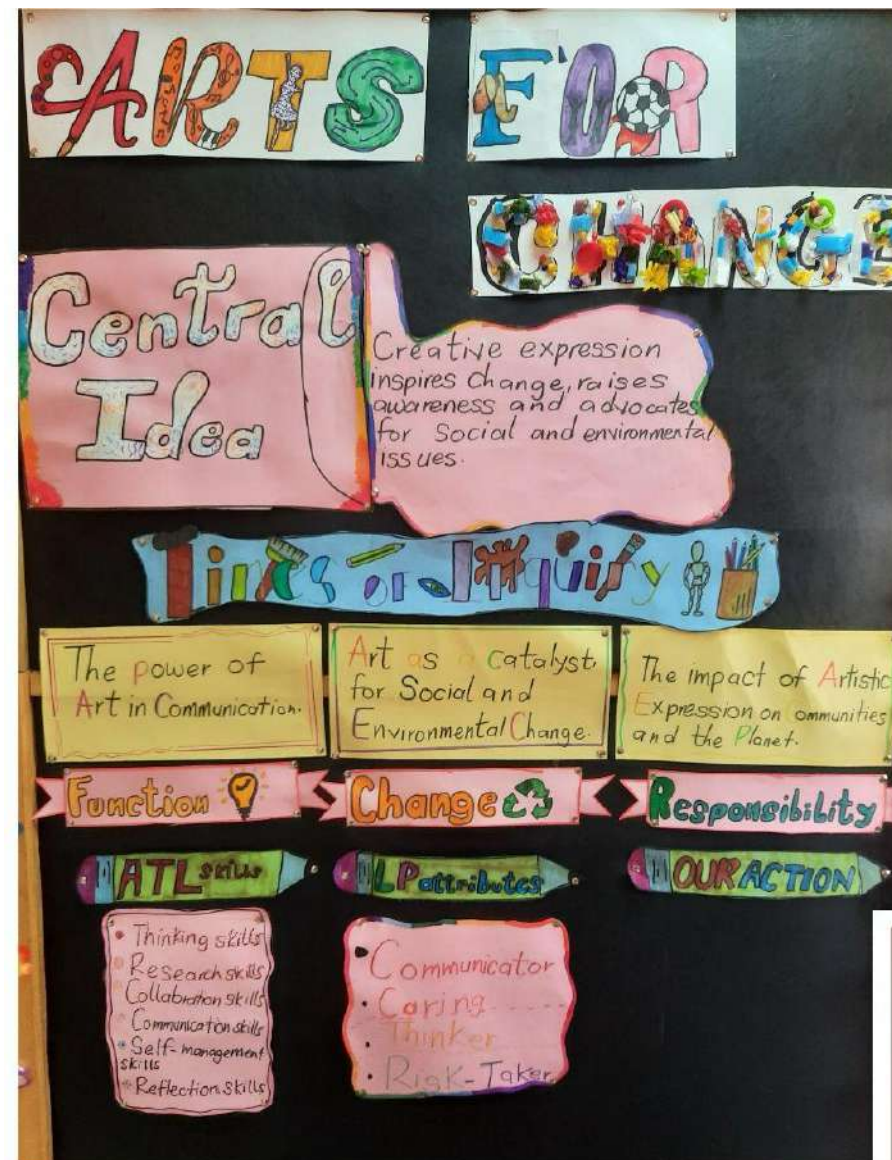 ARTS FOR
CHANGE
Central
Idea
Creative expression
inspires change, raises
awareness and advocates
for Social and environmental
issues.
Lines of Inquiry
The power of
Art in Communication.
Art as a Catalyst
for Social and
Environmental Change.
The impact of Artistic
Expression on Communities
and the Planet.
Function
Change
Responsibility
ATL skills
LP attributes
OUR ACTION
• Thinking skills
• Research skills
• Collabration skills
• Communication skills
• Self-management
skills
• Reflection skills
• Communicator
• Caring
• Thinker
• Risk-Taker